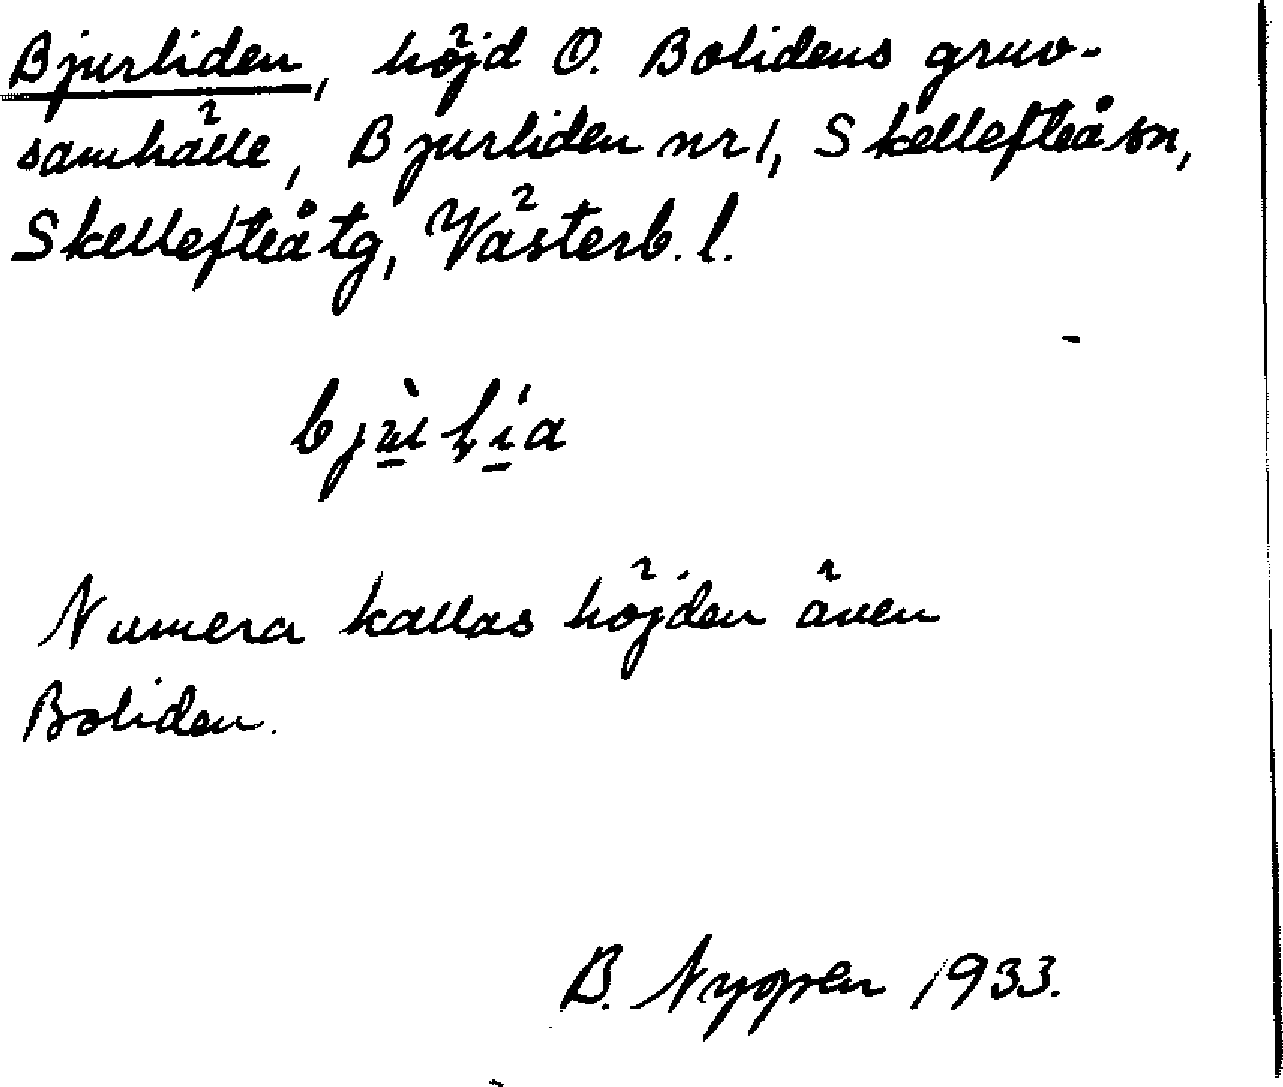 Bjurliden, höjd O. Bolidens gruv-
samhälle, Bjurliden nr 1, Skellefteå sn,
Skellefteå tg, Västerb. l.
Numera kallas höjden även
Boliden.
B. 1933.